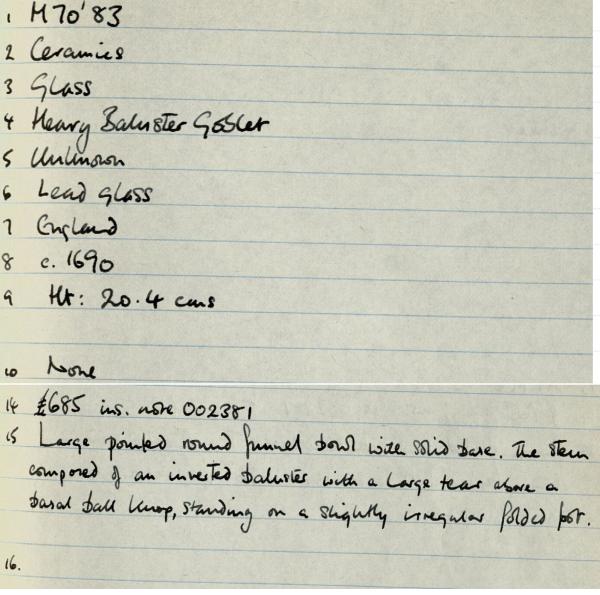 1 M70'83
2 Ceramics
3 Glass
4 Heavy Baluster Goblet
5 Unknown
6 Lead glass
7 England
8 c. 1690
9 Ht: 20.4 cms
10 None
14 £685 ins. note 002381
15 Large pointed round funnel bowl with solid base. The stem
composed of an inverted baluster with a large tear above a
basal ball knop, standing on a slightly irregular folded foot.
16.